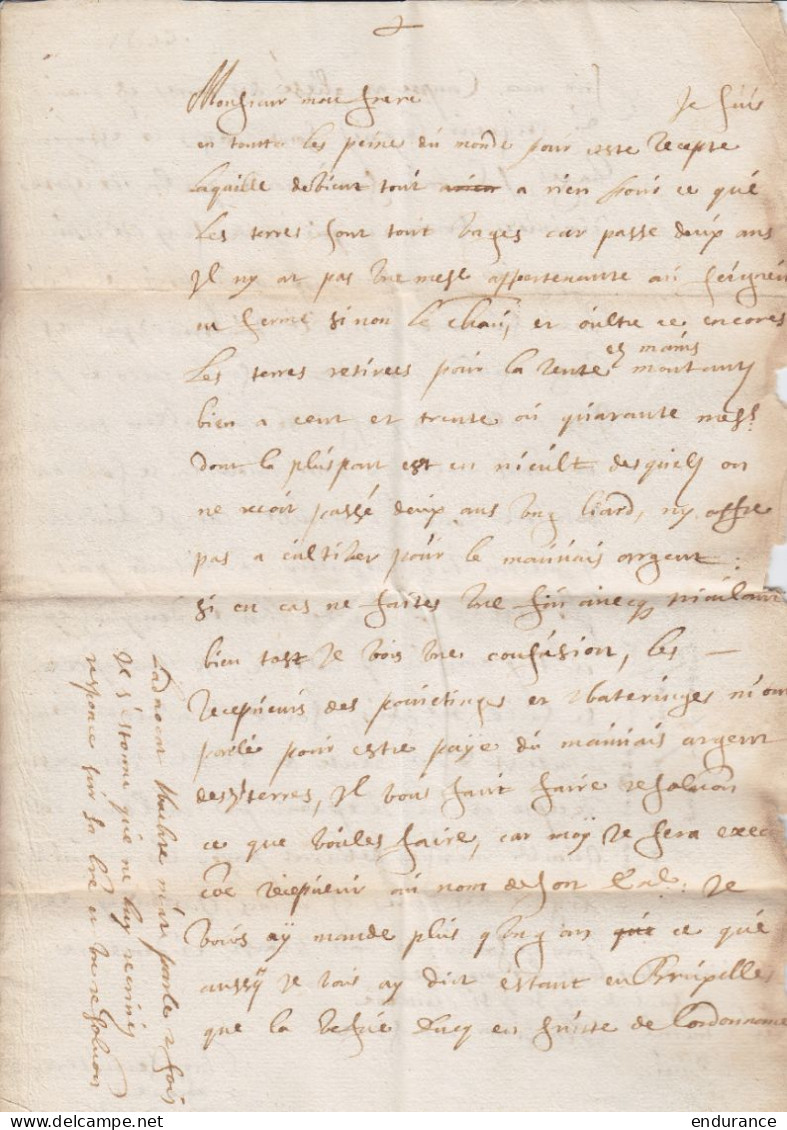 Monsieur mon frere Je suis
en toutte les peine du monde pour ceste recepte
laquille devient tout a rien pour ce que
les terres sont tout vages car passe deux ans
Il ny at pas une mes appertenante au seigneu
sinon le et oultre ce encores
les terres retirees pour la vente es mains montant
bien a cent et trente ou quarante mes
dont la pluspart est en desquels on
ne recoit passé deux ans ung liard, ny
pas a cultiver pour le mauvais argent
si en cas ne faites une fin avecq
bien tost Je vois une confusion, les
recepveurs des et wateringes
parlé pour estre paye du mauvais argent
des terres, Il vous faut faire resoluon
ce que voules faire, car moÿ Je sera exec
coe recepveur au nom de son Je
vous aÿ mande plus qung an ce que
aussÿ Je vous ay dict estant en Bruxelles
que la en suitte de lordonnance
Ladvocat m'at parle 2 fois
Je s'estonne que ne luy
responce sur sa lre et vre resoluon
endurance